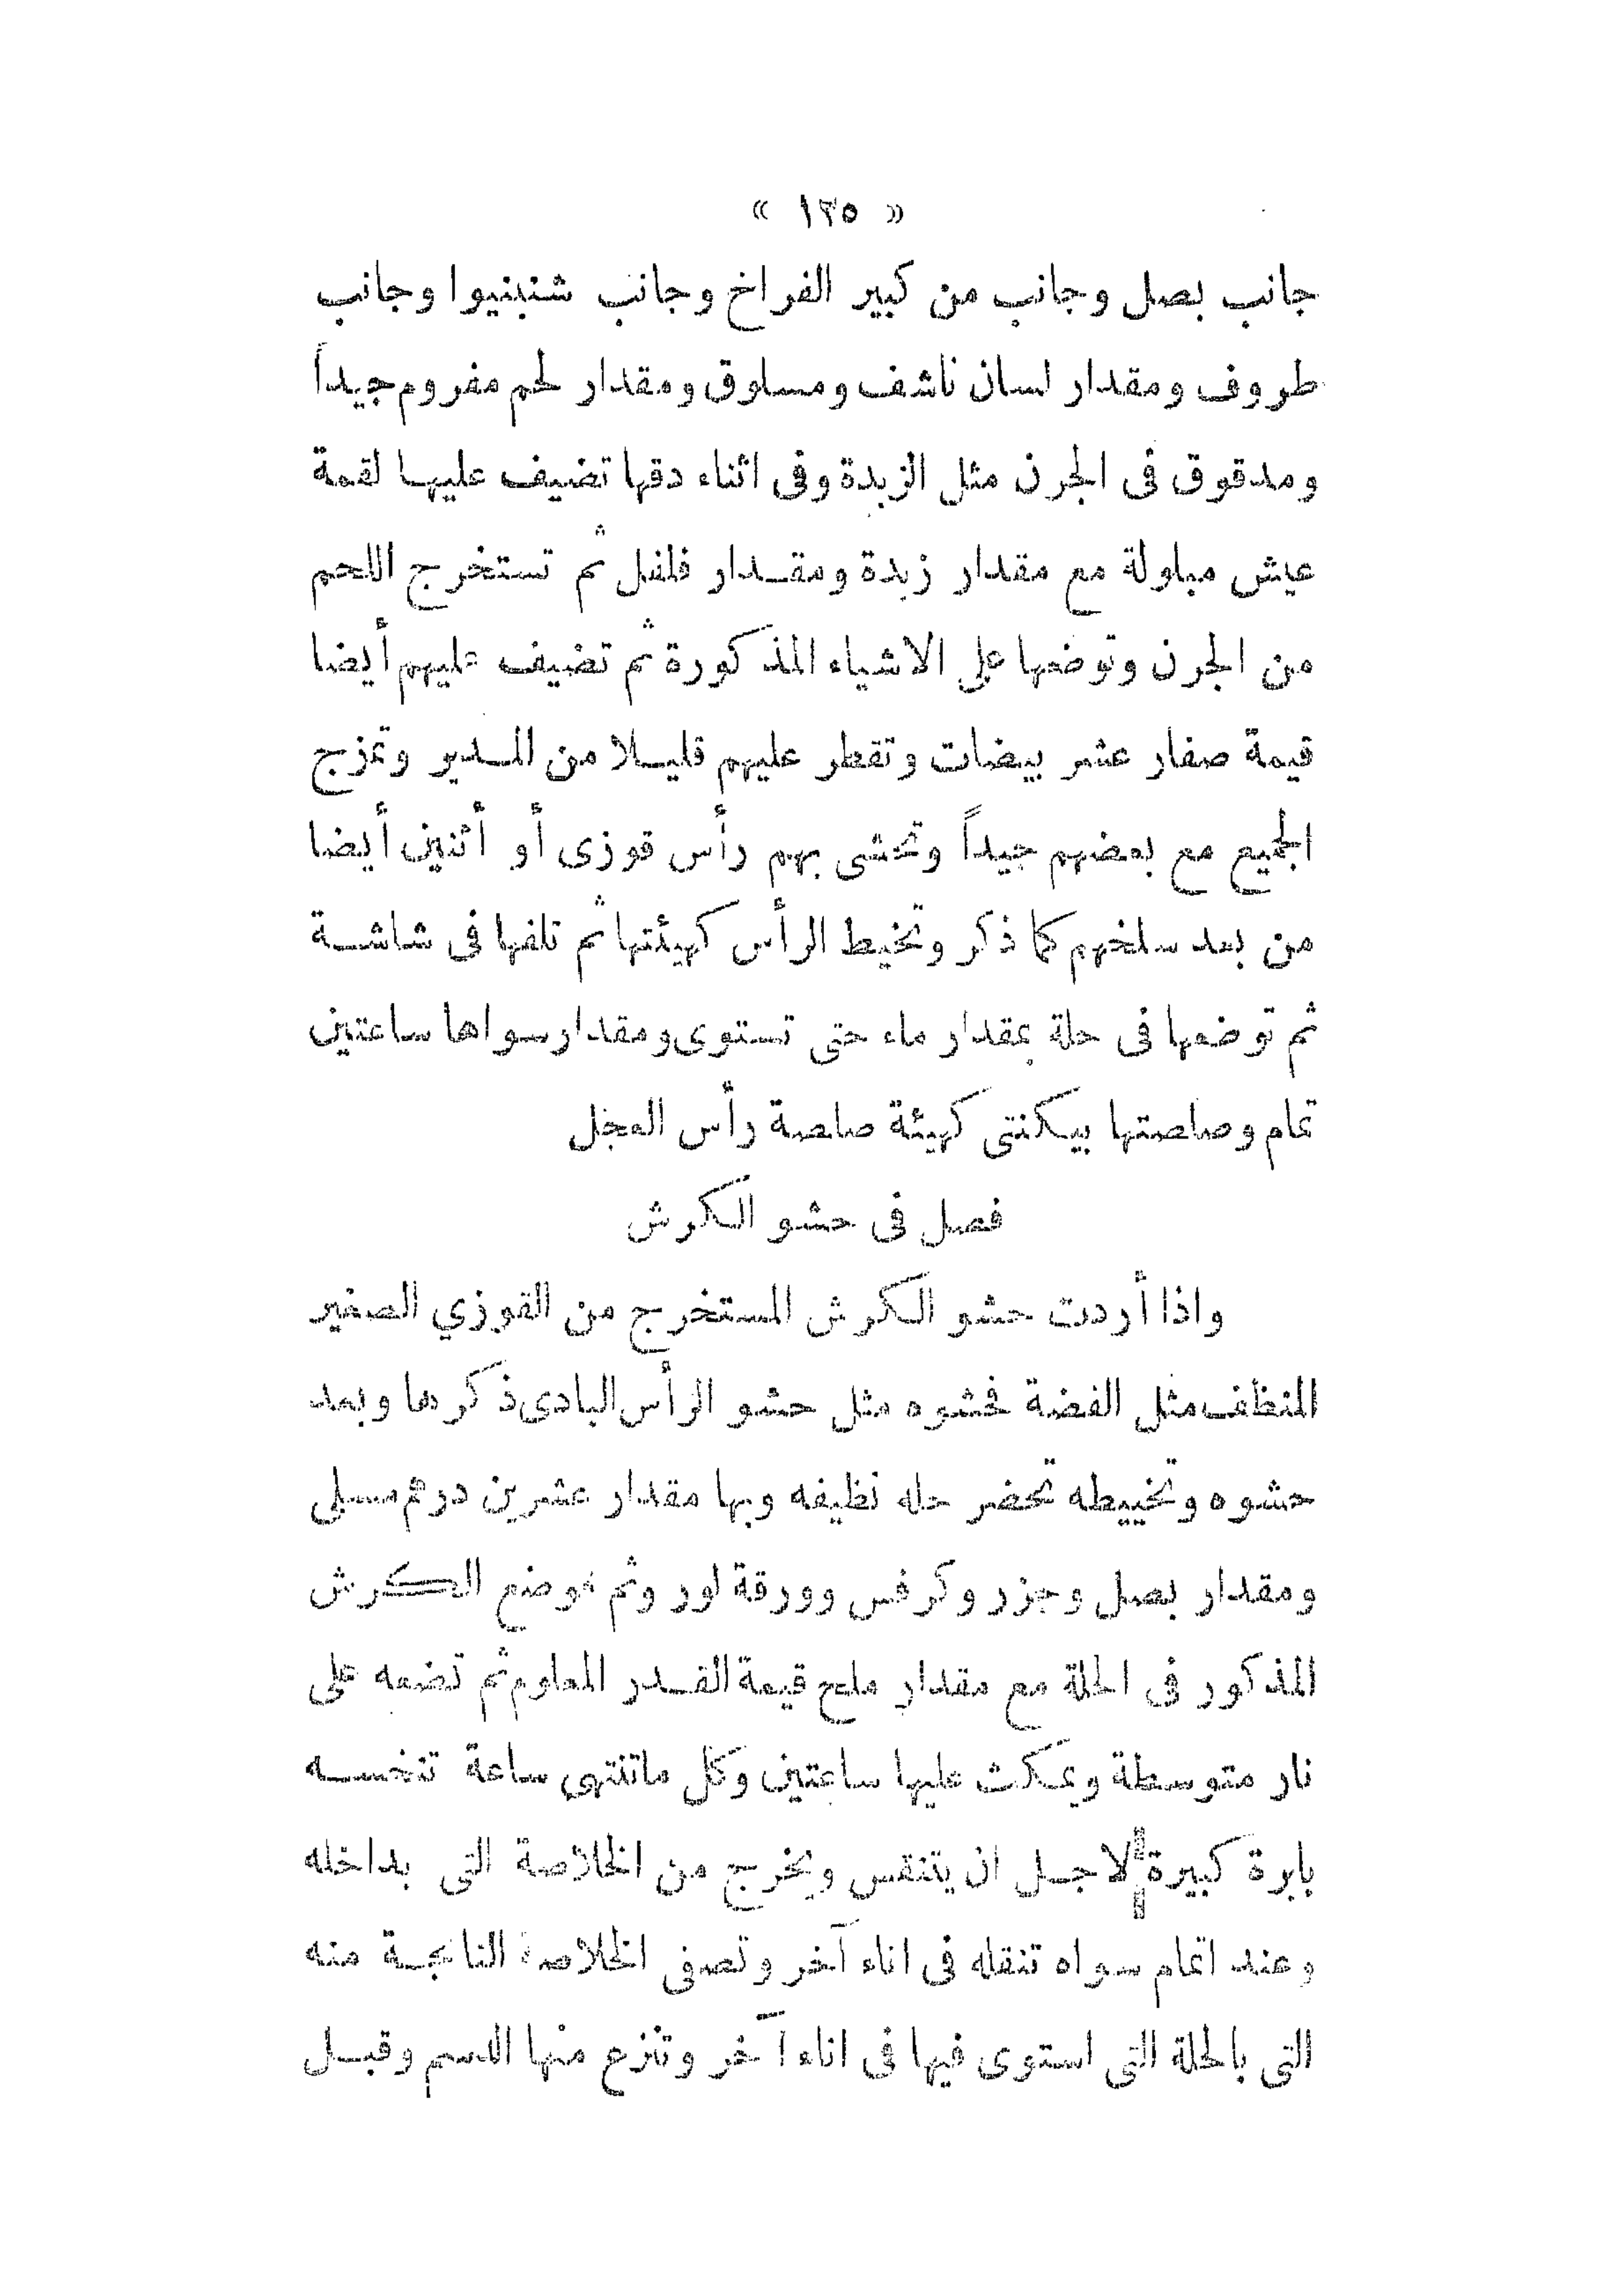 « ١٢٥ »
جانب بصل وجانب من كبير الفراخ وجانب شنبنيوا وجانب
طروف ومقدار لسان ناشف ومسلوق ومقدار لحم مفروم جيداً
ومدقوق فى الجرن مثل الزبدة وفى اثناء دقها تضيف عليها لقمة
عيش مبلولة مع مقدار زبدة ومقدار فلفل ثم تستخرج اللحم
من الجرن وتوضعها على الاشياء المذكورة ثم تضيف عليهم أيضا
قيمة صفار عشر بيضات وتقطر عليهم قليلا من المدير وتمزج
الجميع مع بعضهم جيداً وتحشى بهم رأس قوزى أو أثنين أيضا
من بعد سلخهم كما ذكر وتخيط الرأس كهيئتها ثم تلفها فى شاشة
ثم توضعها فى حلة بمقدار ماء حتى تستوى ومقدار سواها ساعتين
تمام وصلصتها بيكنتى كهيئة صلصة رأس العجل
فصل فى حشو الكرش
واذا أردت حشو الكرش المستخرج من القوزي الصغير
المنظف مثل الفضة فحشوه مثل حشو الرأس البادى ذكرها وبعد
حشوه وتخييطه تحضر حله نظيفه وبها مقدار عشرين درهم مسلى
ومقدار بصل وجزر وكرفس وورقة لور وثم توضع الكرش
المذكور فى الحلة مع مقدار ملح قيمة القدر المعلوم ثم تضعه على
نار متوسطة ويمكث عليها ساعتين وكل ماتنتهى ساعة تنخسه
بابرة كبيرة لاجل ان يتنفس ويخرج من الخلاصة التى بداخله
وعند اتمام سواه تنقله فى اناء آخر وتصفى الخلاصة الناتجة منه
التى بالحلة التى استوى فيها فى اناء آخر وتنزع منها الدسم وقبل